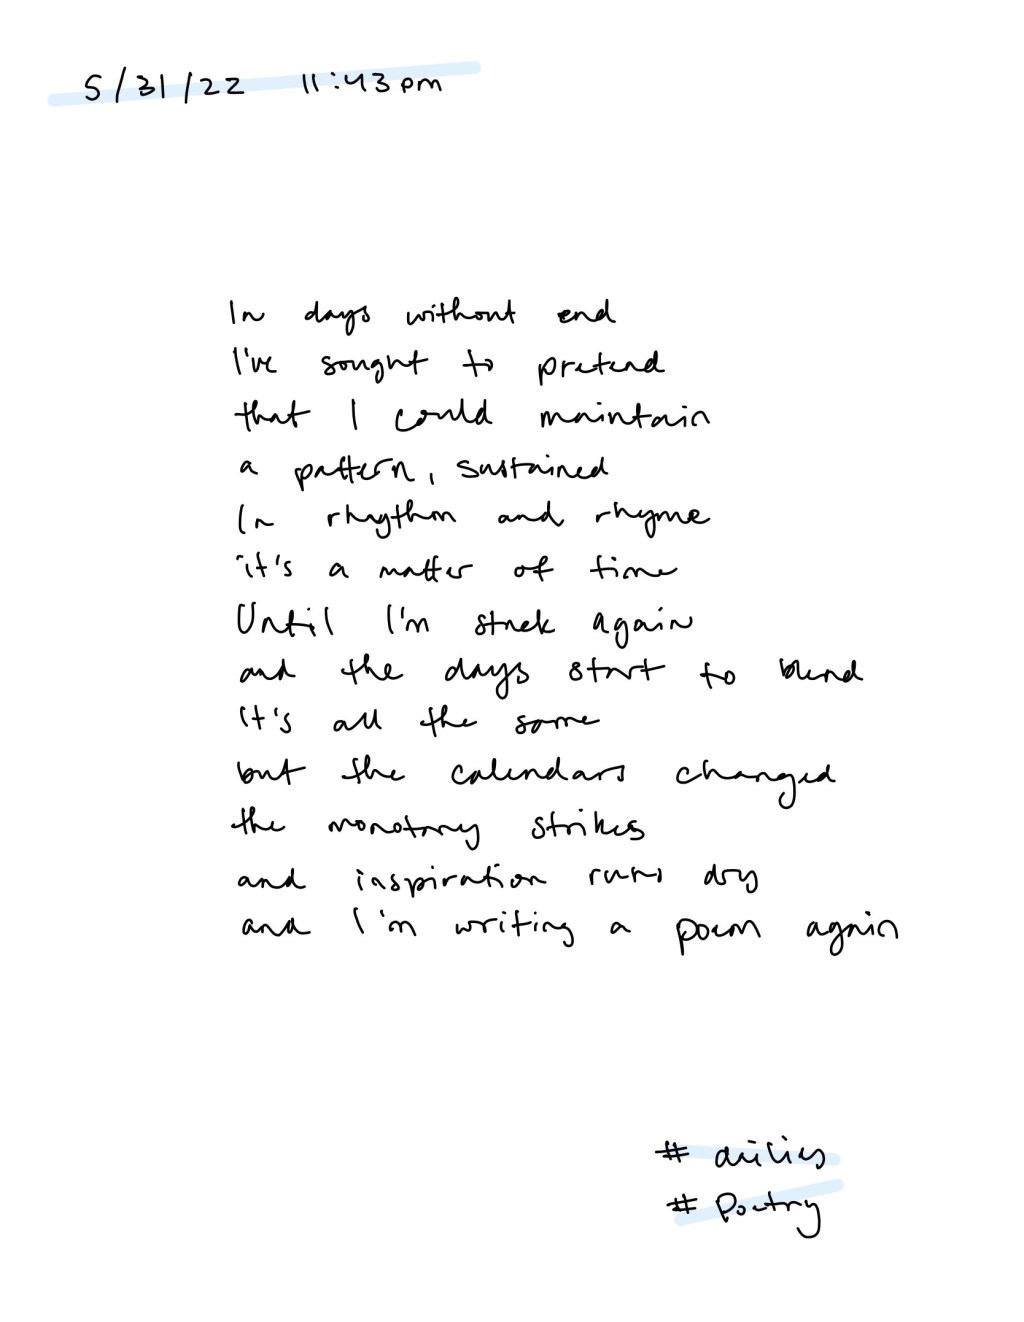 5/31/22 11:43 pm
In days without end
I've sought to pretend
that I could maintain
a pattern, sustained
In rhythm and rhyme
it's a matter of time
Until I'm stuck again
and the days start to blend
it's all the same
but the calendars changed
the monotony strikes
and inspiration runs dry
and I'm writing a poem again
# dailies
# Poetry